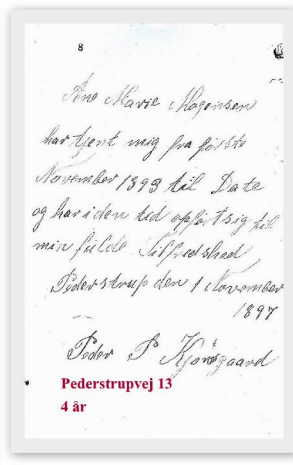 8
Ane Marie Mogensen
har tjent mig fra første
November 1893 til Date
og har i den tid opført sig til
min fulde Tilfredshed
Pederstrup den 1 November
1897
Peder P Kjærsgaard
Pederstrupvej 13
4 år